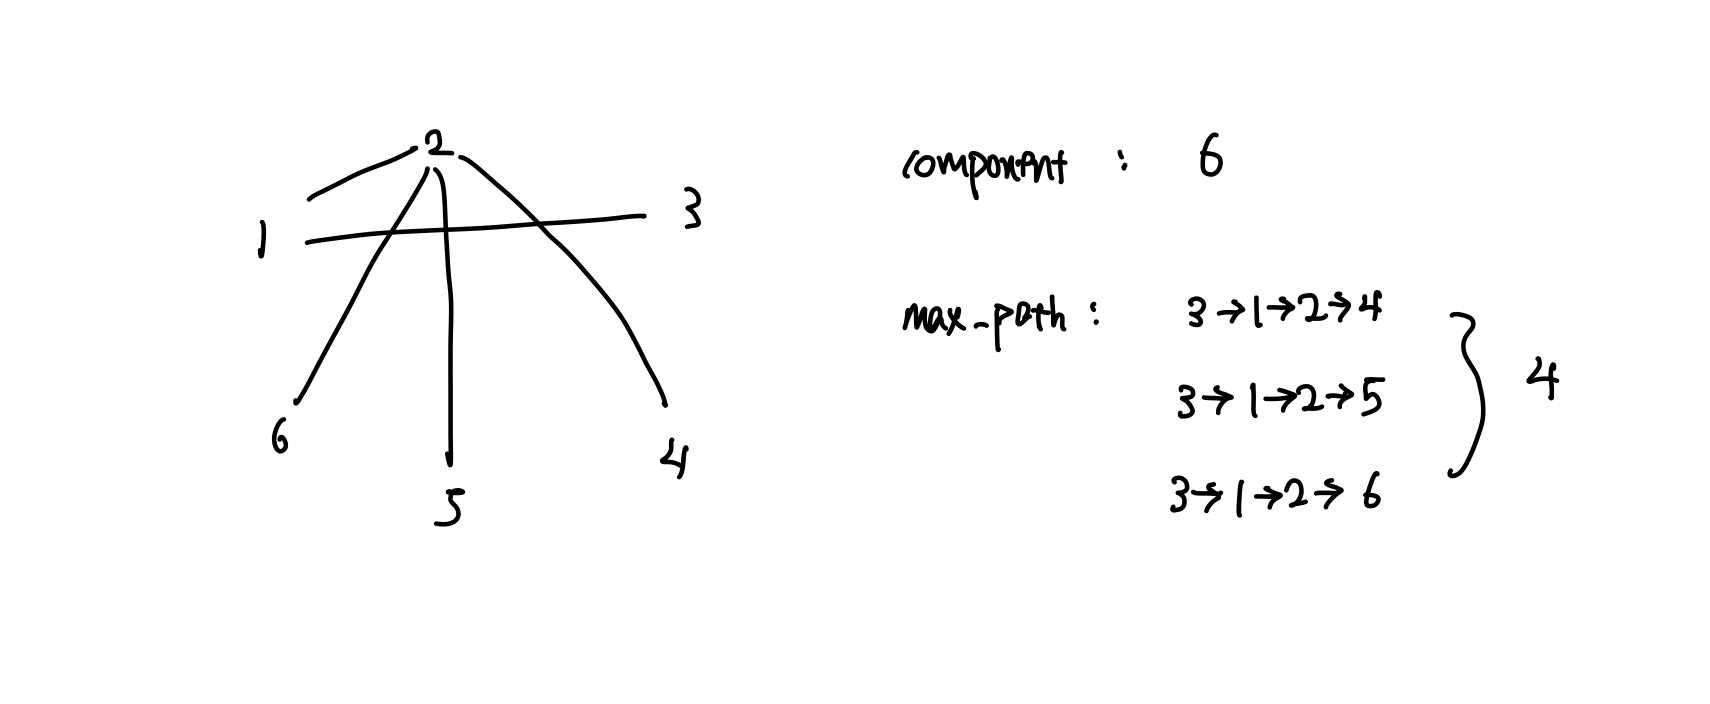 2
1
3
6
5
4
component : 6
max_path : 3→1→2→4
3→1→2→5
3→1→2→6
4